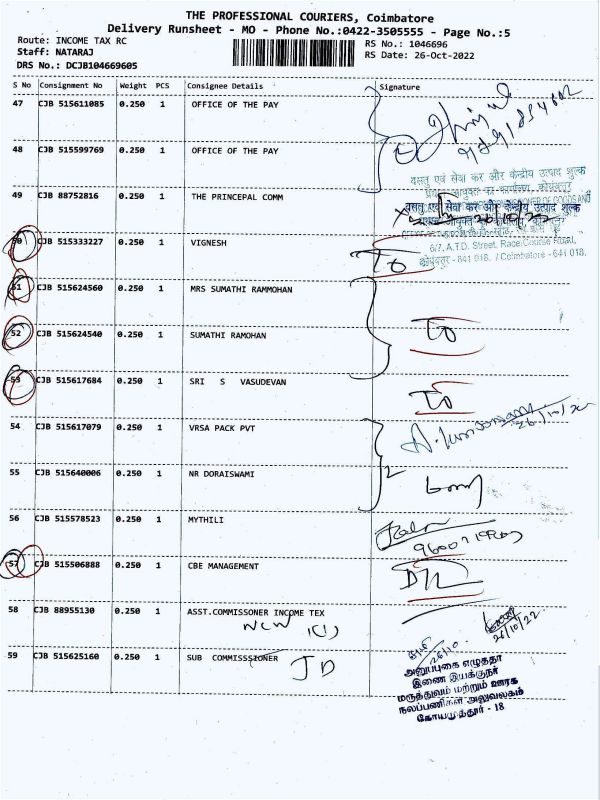 THE PROFESSIONAL COURIERS, Coimbatore
Delivery Runsheet - MO - Phone No.:0422-3505555 - Page No.:5
Route: INCOME TAX RC
RS No.: 1046696
Staff: NATARAJ
RS Date: 26-Oct-2022
DRS No.: DCJB104669605
S No Consignment No Weight PCS Consignee Details Signature
47 CJB 515611085 0.250 1 OFFICE OF THE PAY
48 CJB 515599769 0.250 1 OFFICE OF THE PAY
वस्तु एवं सेवा कर और केन्द्रीय उत्पाद शुल्क
49 CJB 88752816 0.250 1 THE PRINCEPAL COMM
वस्तु एवं सेवा कर और केन्द्रीय उत्पाद शुल्क
26/10/22
50 CJB 515333227 0.250 1 VIGNESH
6/7, A.T.D. Street, Race Course Road,
कोयंबत्तूर - 841 018. / Coimbatore - 641 018.
TO
51 CJB 515624560 0.250 1 MRS SUMATHI RAMMOHAN
52 CJB 515624540 0.250 1 SUMATHI RAMOHAN
TO
53 CJB 515617684 0.250 1 SRI S VASUDEVAN
TO
54 CJB 515617079 0.250 1 VRSA PACK PVT
26/10/22
55 CJB 515640006 0.250 1 NR DORAISWAMI
2
56 CJB 515578523 0.250 1 MYTHILI
57 CJB 515506888 0.250 1 CBE MANAGEMENT
DL
58 CJB 88955130 0.250 1 ASST.COMMISSONER INCOME TEX
NCW 1(1)
26/10/22
59 CJB 515625160 0.250 1 SUB COMMISSSIONER
JD
26/10
அனுப்புகை எழுத்தர்
இணை இயக்குநர்
மருத்துவம் மற்றும் ஊரக
நலப்பணிகள் அலுவலகம்
கோயமுத்தூர் - 18